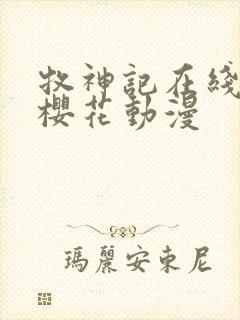 牧神記在綫
櫻花動漫
瑪麗安東尼